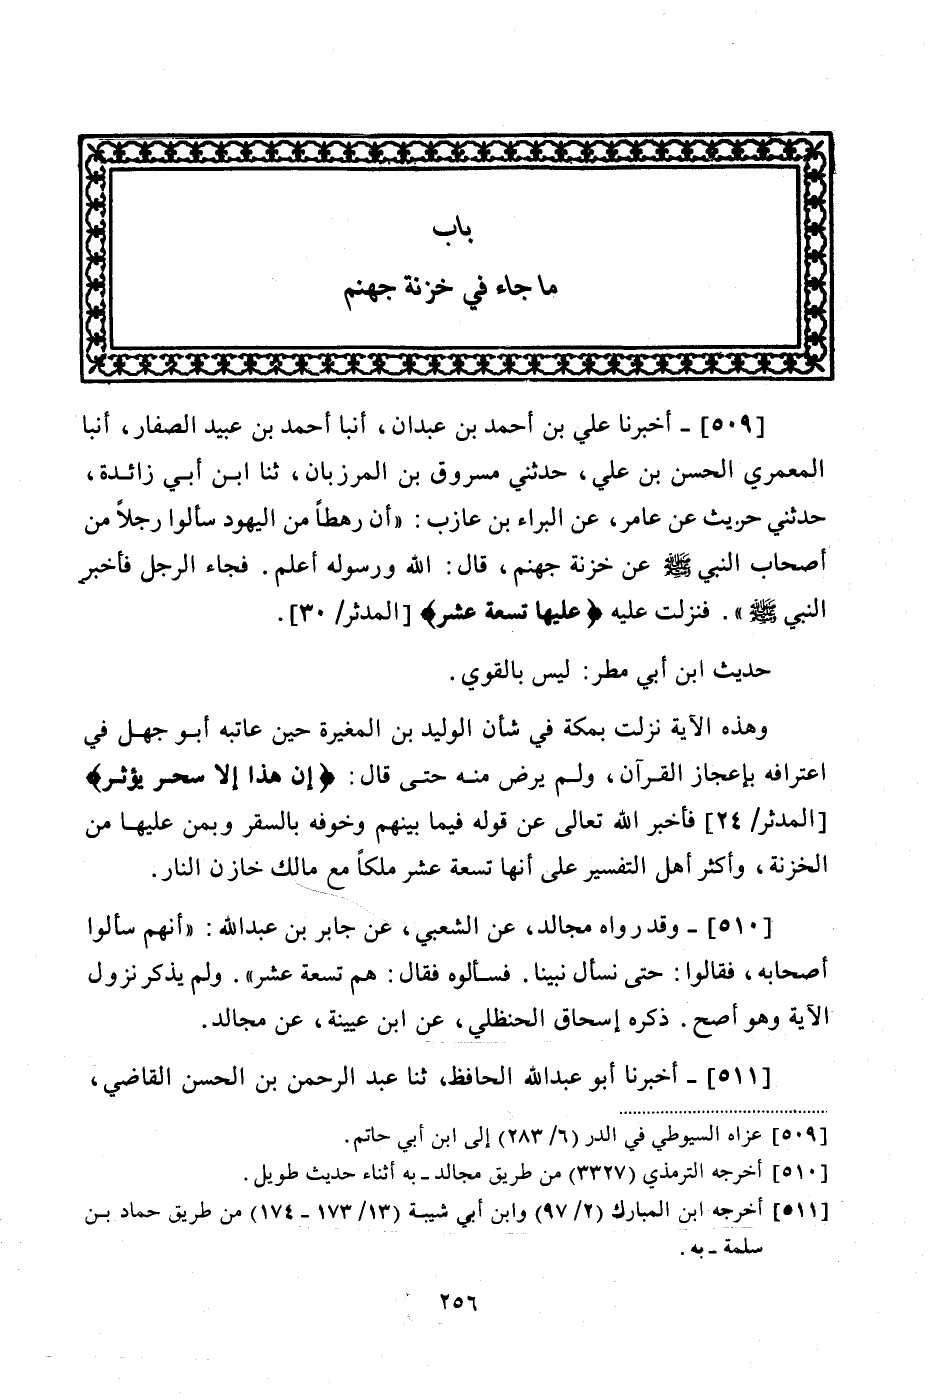 باب
ما جاء في خزنة جهنم
[٥٠٩] ـ أخبرنا علي بن أحمد بن عبدان، أنبا أحمد بن عبيد الصفار، أنبا
المعمري الحسن بن علي، حدثني مسروق بن المرزبان، ثنا ابن أبي زائدة،
حدثني حريث عن عامر، عن البراء بن عازب: «أن رهطاً من اليهود سألوا رجلاً من
أصحاب النبي ﷺ عن خزنة جهنم، قال: الله ورسوله أعلم. فجاء الرجل فأخبر
النبي ﷺ». فنزلت عليه ﴿عليها تسعة عشر﴾ [المدثر/ ٣٠].
حديث ابن أبي مطر: ليس بالقوي.
وهذه الآية نزلت بمكة في شأن الوليد بن المغيرة حين عاتبه أبو جهل في
اعترافه بإعجاز القرآن، ولم يرض منه حتى قال: ﴿إن هذا إلا سحر يؤثر﴾
[المدثر/ ٢٤] فأخبر الله تعالى عن قوله فيما بينهم وخوفه بالسقر وبمن عليها من
الخزنة، وأكثر أهل التفسير على أنها تسعة عشر ملكاً مع مالك خازن النار.
[٥١٠] ـ وقد رواه مجالد، عن الشعبي، عن جابر بن عبدالله: «أنهم سألوا
أصحابه، فقالوا: حتى نسأل نبينا. فسألوه فقال: هم تسعة عشر». ولم يذكر نزول
الآية وهو أصح. ذكره إسحاق الحنظلي، عن ابن عيينة، عن مجالد.
[٥١١] ـ أخبرنا أبو عبدالله الحافظ، ثنا عبد الرحمن بن الحسن القاضي،
[٥٠٩] عزاه السيوطي في الدر (٦/ ٢٨٣) إلى ابن أبي حاتم.
[٥١٠] أخرجه الترمذي (٣٣٢٧) من طريق مجالد ـ به أثناء حديث طويل.
[٥١١] أخرجه ابن المبارك (٢/ ٩٧) وابن أبي شيبة (١٣/ ١٧٣ ـ ١٧٤) من طريق حماد بن
سلمة ـ به.
٢٥٦